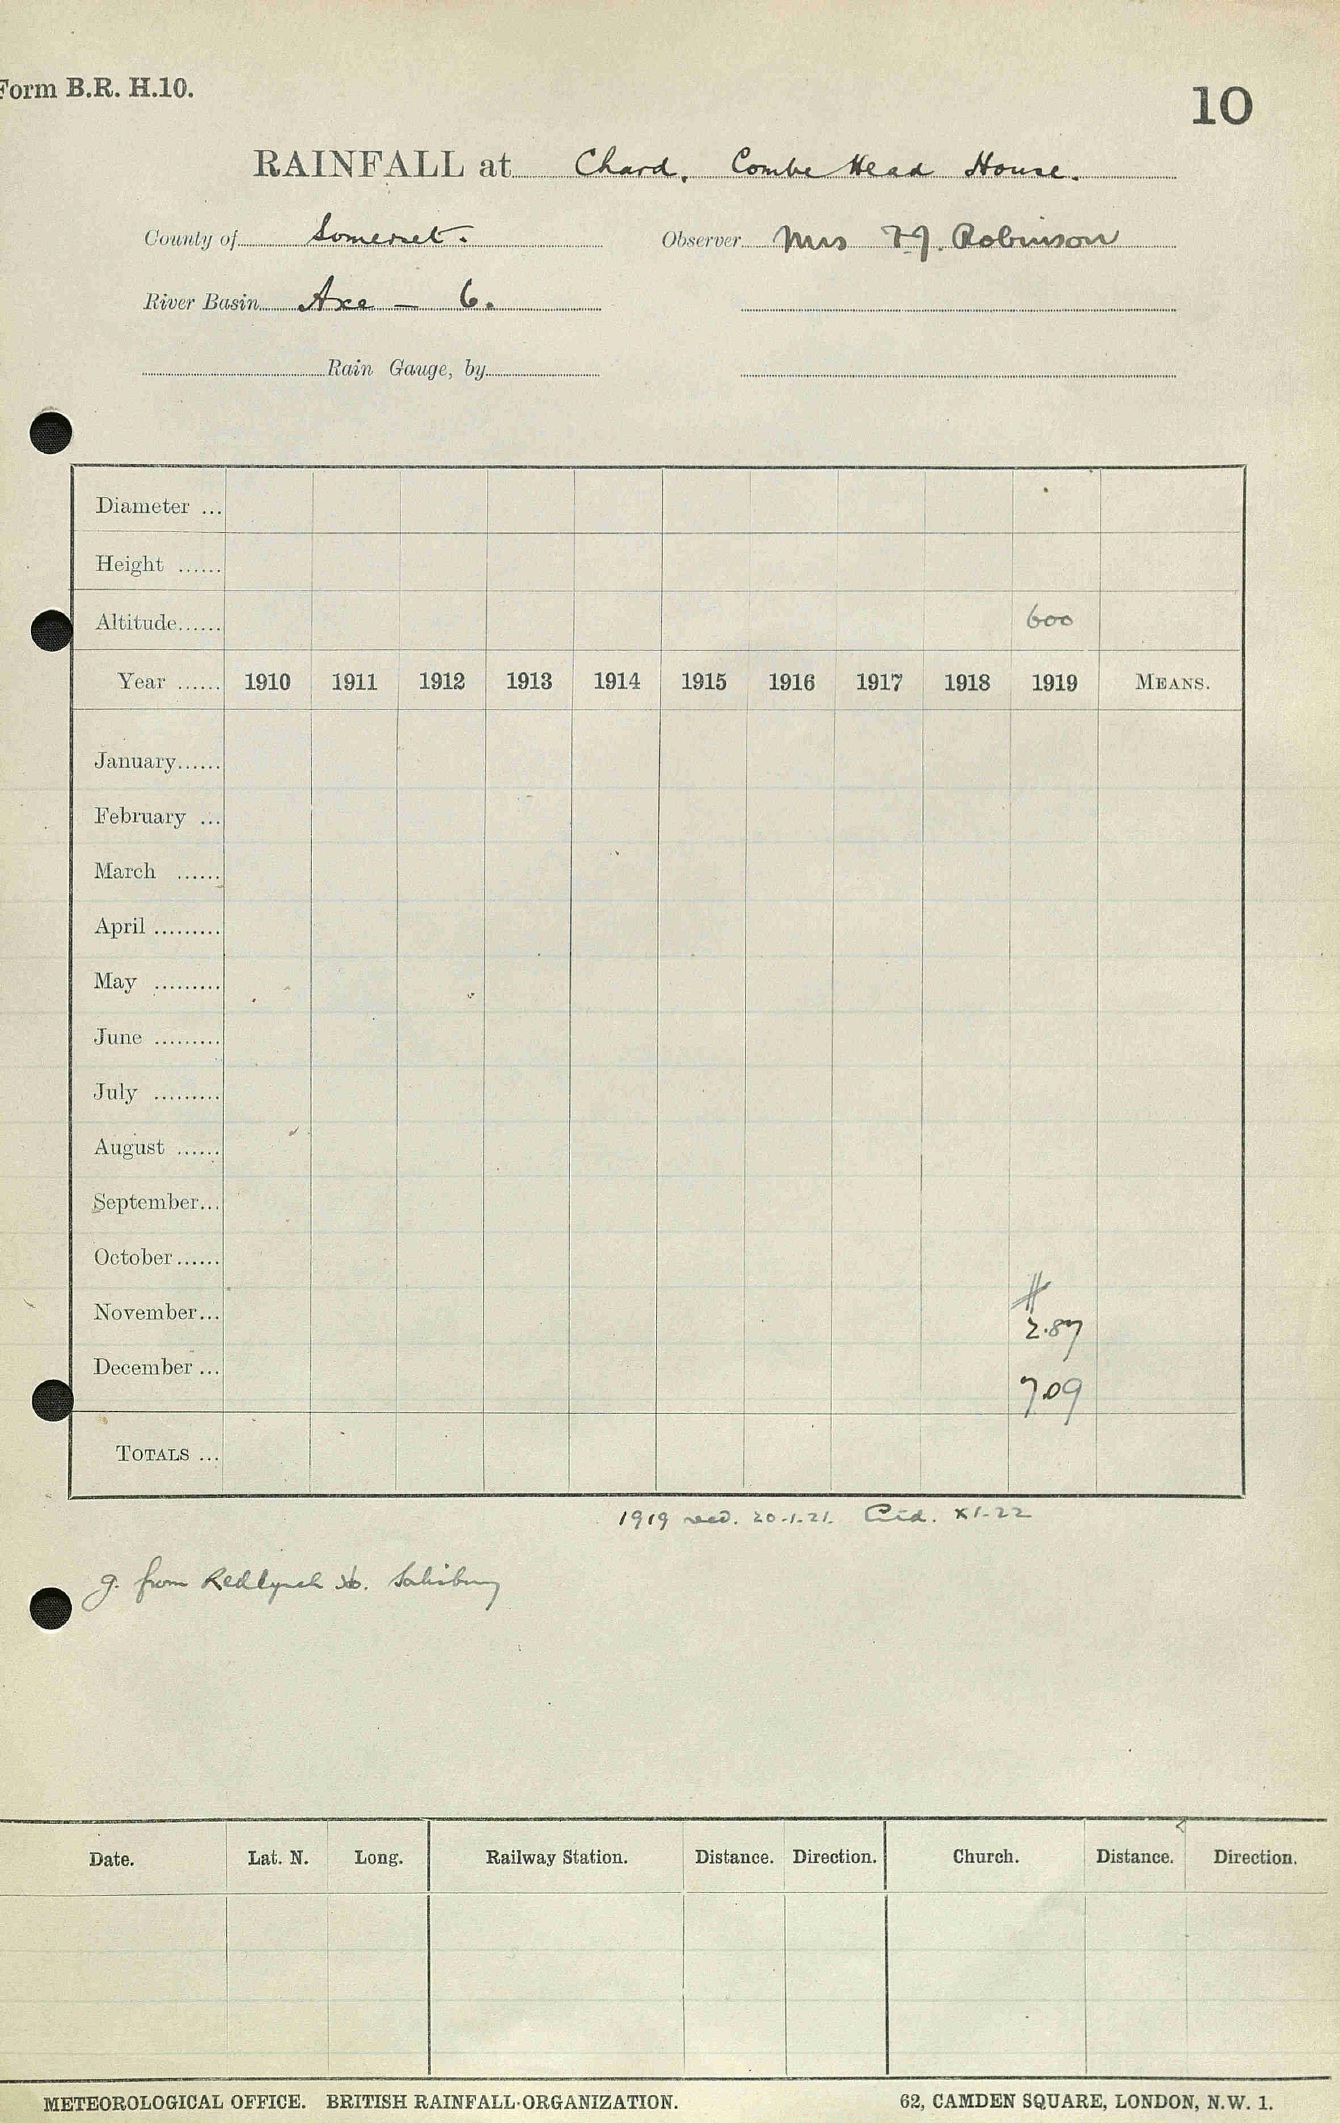 Form B.R. H.10.
10
RAINFALL at Chard, Combe Head House.
County of Somerset. Observer Mrs Robinson
River Basin Axe — 6.
Rain Gauge, by
Diameter ...
Height ......
Altitude...... 600
Year ...... 1910 1911 1912 1913 1914 1915 1916 1917 1918 1919 MEANS.
January......
February ...
March ......
April .........
May .........
June .........
July .........
August ......
September...
October......
November... 2.87
December ... 7.09
TOTALS ...
1919 recd. 20.1.21. XI.22
g. from Redlynch Salisbury
Date. Lat. N. Long. Railway Station. Distance. Direction. Church. Distance. Direction.
METEOROLOGICAL OFFICE. BRITISH RAINFALL ORGANIZATION. 62, CAMDEN SQUARE, LONDON, N.W. 1.